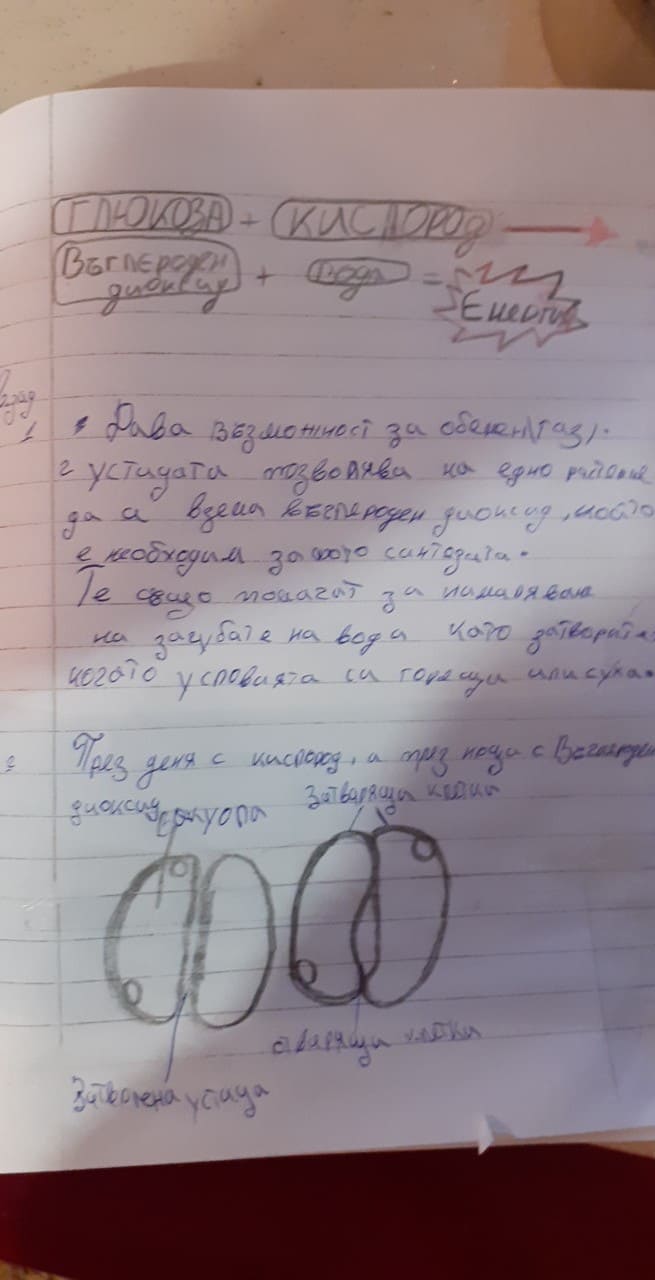 ГЛЮКОЗА + КИСЛОРОД →
Въглероден диоксид + вода = Енергия
зад
1 Дава възможност за обмен(газ).
2 устидата позволява на едно растение
да си взема въглероден диоксид, което
е необходим за фото синтезата.
Те също помагат за намаляване
на загубате на вода като затворят
когато условията са горещи или суха.
През деня с кислород, а през нощя с Въглероден
диоксид
Затварящи клетки
вакуола
отварящи клетки
Затворена устица